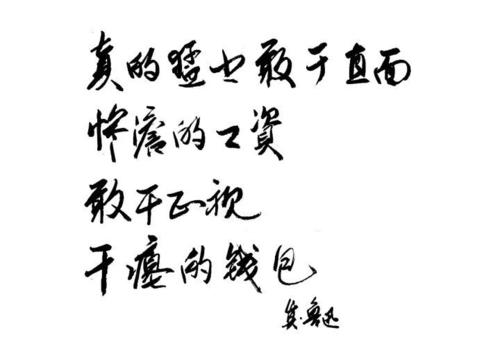 真的猛士敢于直面
惨澹的工資
敢于正视
干瘪的钱包
鲁迅